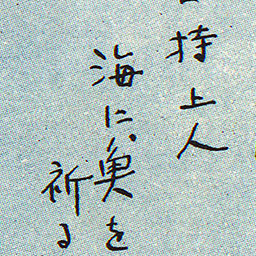 持上人
海に、魚を
祈る